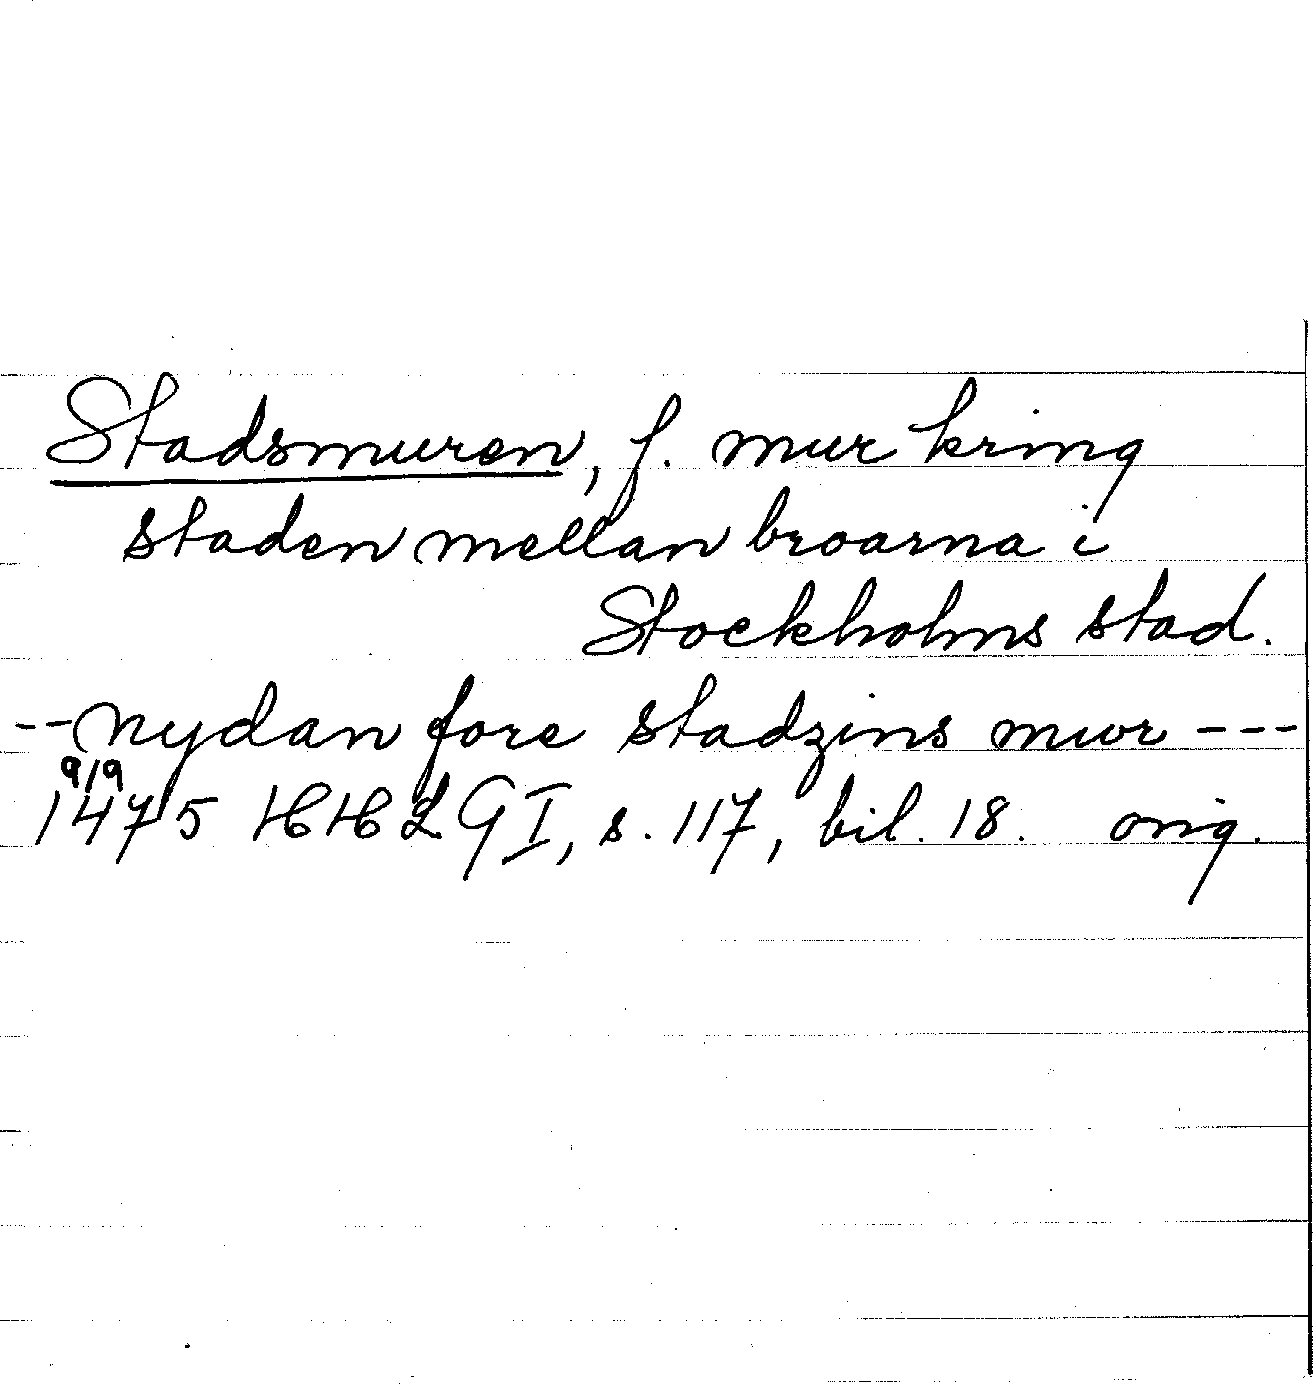 Stadsmuren, f. mur kring
staden mellan broarna i
Stockholms stad.
-- nydan fore stadzins mwr ---
9/9
1475 HH2GI, s. 117, bil. 18. orig.